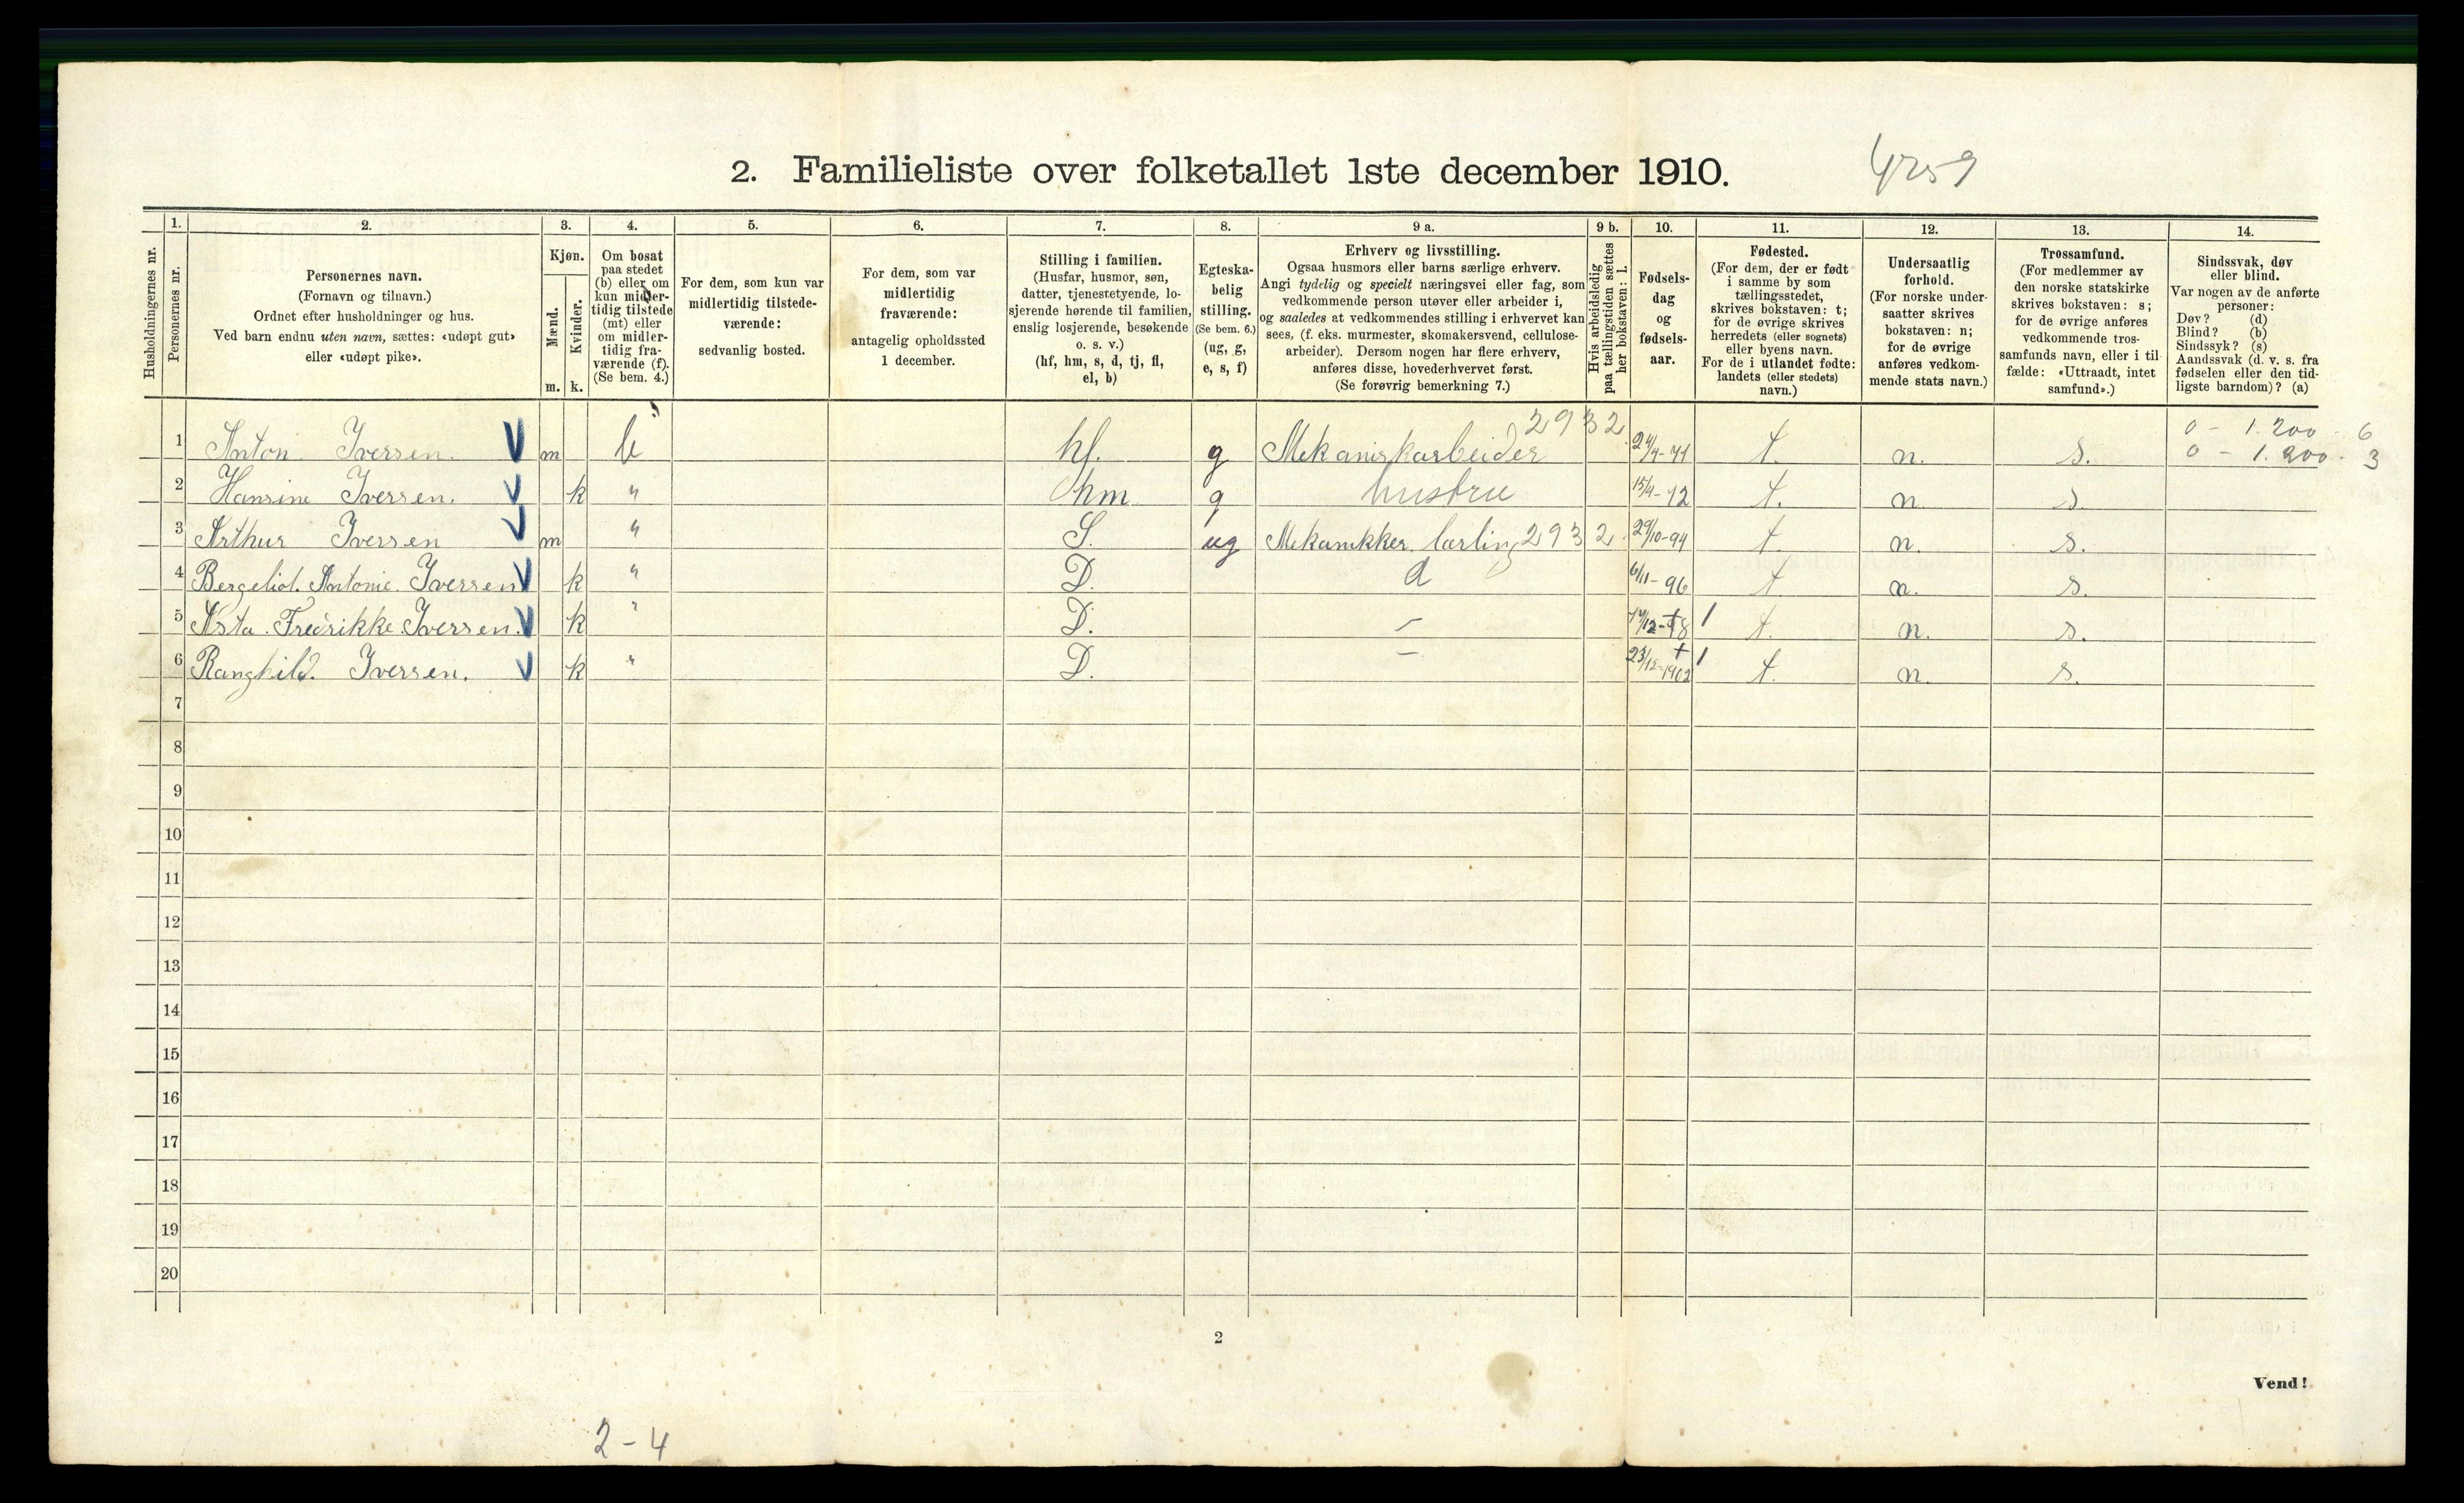 2. Familieliste over folketallet 1ste december 1910.
4259
Husholdningernes nr.
1.
Personernes nr.
2.
Personernes navn.
(Fornavn og tilnavn.)
Ordnet efter husholdninger og hus.
Ved barn endnu uten navn, sættes: «udøpt gut»
eller «udøpt pike».
3.
Kjøn.
Mænd.
m.
Kvinder.
k.
4.
Om bosat
paa stedet
(b) eller om
kun midler-
tidig tilstede
(mt) eller
om midler-
tidig fra-
værende (f).
(Se bem. 4.)
5.
For dem, som kun var
midlertidig tilstede-
værende:
sedvanlig bosted.
6.
For dem, som var
midlertidig
fraværende:
antagelig opholdssted
1 december.
7.
Stilling i familien.
(Husfar, husmor, søn,
datter, tjenestetyende, lo-
sjerende hørende til familien,
enslig losjerende, besøkende
o. s. v.)
(hf, hm, s, d, tj, fl,
el, b)
8.
Egteska-
belig
stilling.
(Se bem. 6.)
(ug, g,
e, s, f)
9 a.
Erhverv og livsstilling.
Ogsaa husmors eller barns særlige erhverv.
Angi tydelig og specielt næringsvei eller fag, som
vedkommende person utøver eller arbeider i,
og saaledes at vedkommendes stilling i erhvervet kan
sees, (f. eks. murmester, skomakersvend, cellulose-
arbeider). Dersom nogen har flere erhverv,
anføres disse, hovederhvervet først.
(Se forøvrig bemerkning 7.)
9 b.
Hvis arbeidsledig
paa tællingstiden sættes
her bokstaven: l.
10.
Fødsels-
dag
og
fødsels-
aar.
11.
Fødested.
(For dem, der er født
i samme by som
tællingsstedet,
skrives bokstaven: t;
for de øvrige skrives
herredets (eller sognets)
eller byens navn.
For de i utlandet fødte:
landets (eller stedets)
navn.)
12.
Undersaatlig
forhold.
(For norske under-
saatter skrives
bokstaven: n;
for de øvrige
anføres vedkom-
mende stats navn.)
13.
Trossamfund.
(For medlemmer av
den norske statskirke
skrives bokstaven: s;
for de øvrige anføres
vedkommende tros-
samfunds navn, eller i til
fælde: «Uttraadt, intet
samfund».)
14.
Sindssvak, døv
eller blind.
Var nogen av de anførte
personer:
Døv? (d)
Blind? (b)
Sindssyk? (s)
Aandssvak (d. v. s. fra
fødselen eller den tid-
ligste barndom)? (a)
2932 0 - 1.200 - 6
1 Anton Iversen. m b hf. g Mekaniskarbeider t. n. s. 0 - 1.200 - 3
2 Hansine Iversen. k " hm g hustru 15/4-72 t. n. s.
3 Arthur Iversen m " S. ug Mekanikker lærling 2932 29/10-94 t. n. s.
4 Bergeliot. Antonie. Iversen k " D. d 6/11-96 t n. s.
5 Asta. Fredrikke. Iversen. k " D. - 1 t. n. s.
6 Ranghild. Iversen. k " D. - 23/12-1902 1 t. n. s.
7
8
9
10
11
12
13
14
15
16
17
18
19
20
2
Vend!
2-4